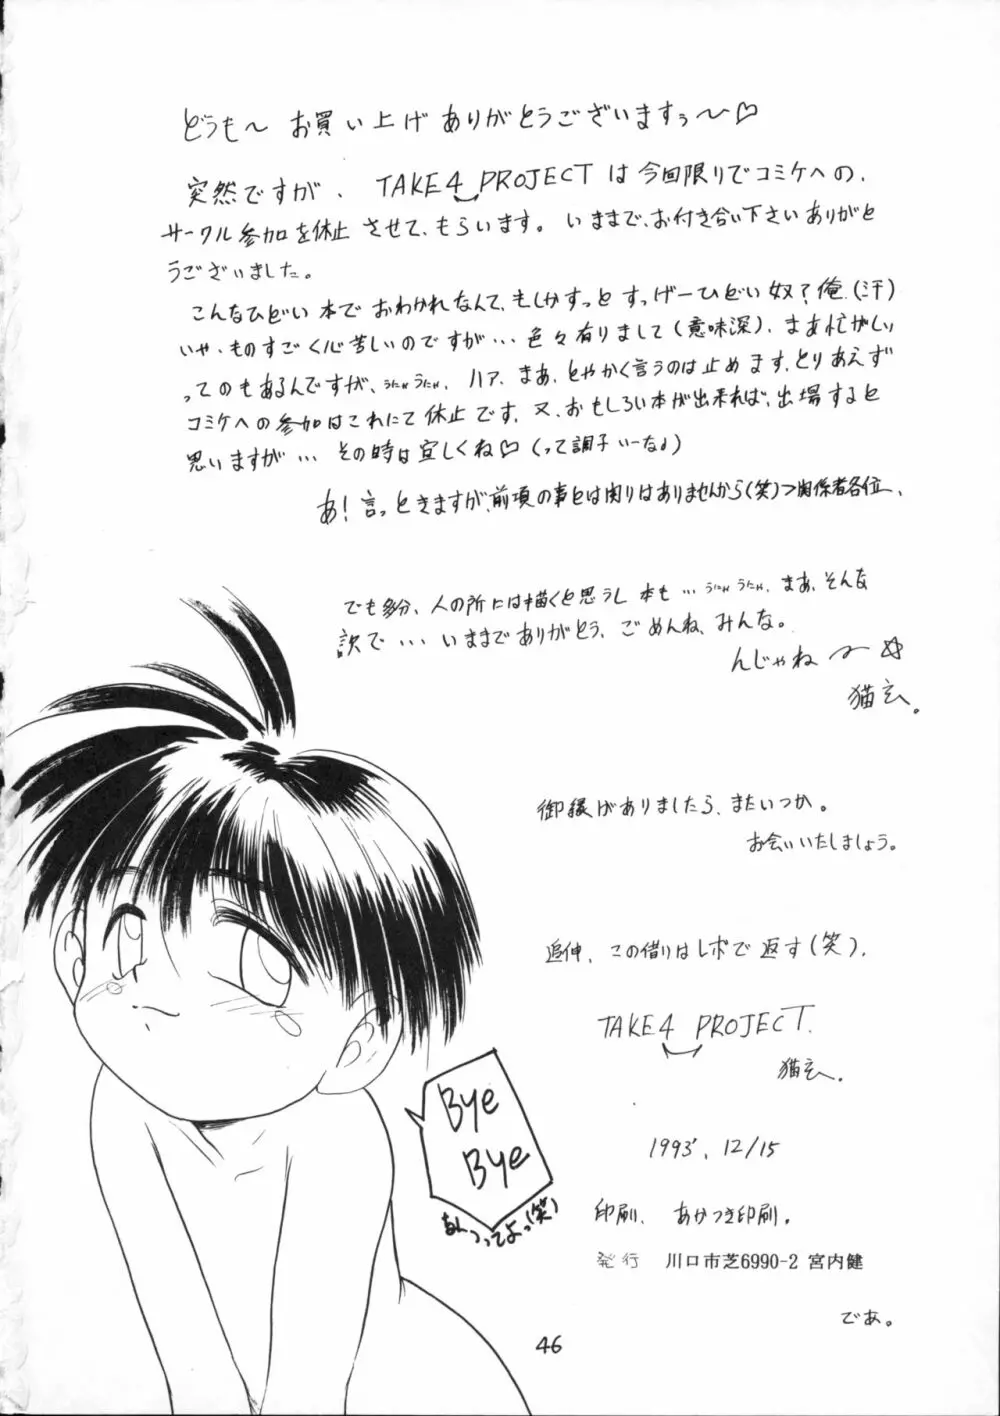 どうも〜 お買い上げありがとうございますぅ〜♡
突然ですが、TAKE4 PROJECTは今回限りでコミケへの、
サークル参加を休止させて、もらいます。いままで、お付き合い下さいありがと
うございました。
こんなひどい本でおわかれなんて、もしかすっとすっげーひどい奴?俺、(汗)
いや、ものすごく心苦しいのですが… 色々有りまして(意味深)、まあ忙がしい
ってのもあるんですが、うにゃうにゃ、ハァ、まあ、とやかく言うのは止めます、とりあえず
コミケへの参加はこれにて休止です、又、おもしろい本が出来れば、出場すると
思いますが… その時は宜しくね♡(って調子いーな♪)
あ!言っときますが、前項の事とは関りはありませんから(笑)>関係者各位、
でも多分、人の所には描くと思うし本も… うにゃうにゃ、まあ、そんな
訳で… いままでありがとう、ごめんね、みんな。
んじゃね〜☆
猫玄。
御縁がありましたら、またいつか。
お会いいたしましょう。
追伸、この借りはレボで返す(笑)、
TAKE4 PROJECT.
猫玄。
Bye
Bye
あんっってよっ(笑)
1993', 12/15
印刷、あかつき印刷。
発行 川口市芝6990-2 宮内健
であ。
46